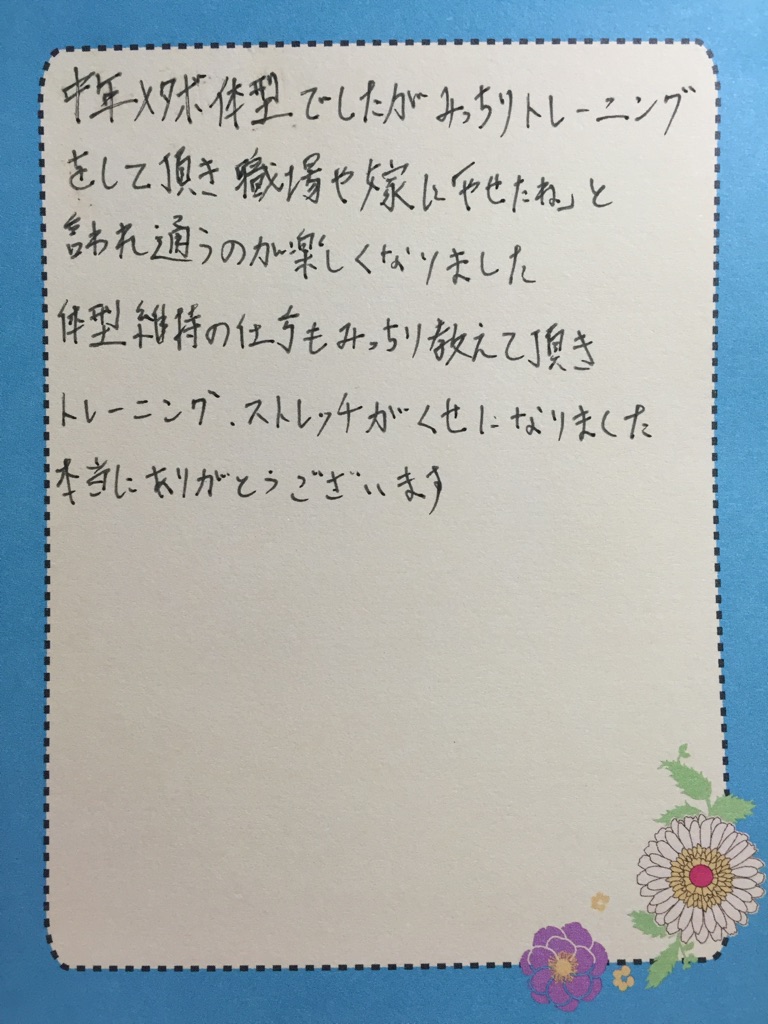 中年メタボ体型でしたがみっちりトレーニング
をして頂き職場や嫁に「やせたね」と
言われ通うのが楽しくなりました
体型維持の仕方もみっちり教えて頂き
トレーニング、ストレッチがくせになりました
本当にありがとうございます